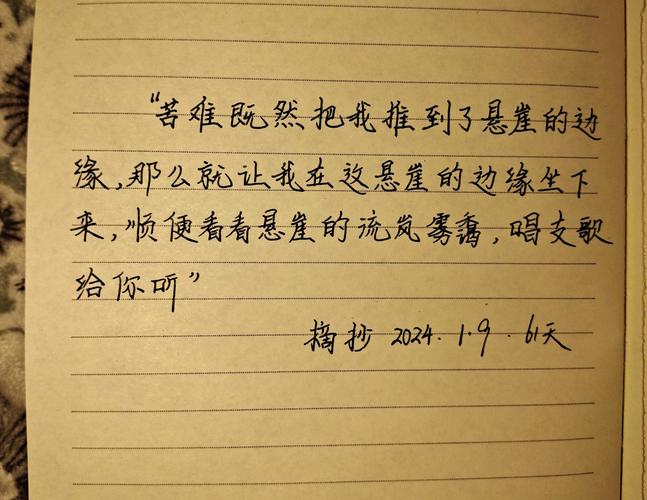 “苦难既然把我推到了悬崖的边
缘,那么就让我在这悬崖的边缘坐下
来,顺便看看悬崖的流岚雾霭,唱支歌
给你听”
摘抄 2024.1.9.61天